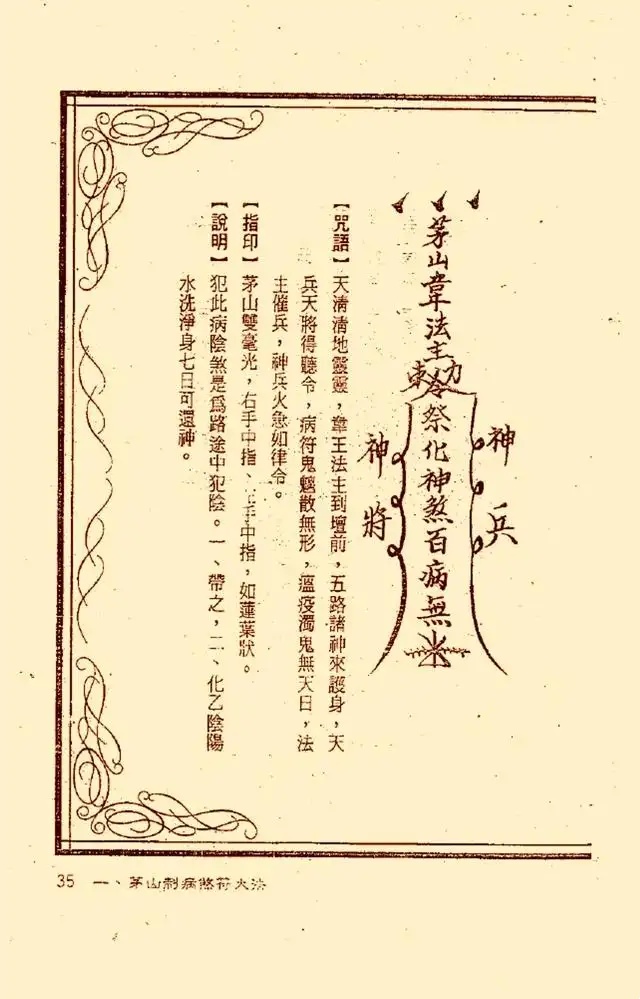 神兵
茅山韋法主勅令祭化神煞百病無
神將
【咒語】天清清地靈靈，韋王法主到壇前，五路諸神來護身，天
兵天將得聽令，病符鬼魑散無形，瘟疫濁鬼無天日，法
主催兵，神兵火急如律令。
【指印】茅山雙毫光，右手中指、左手中指，如蓮葉狀。
【說明】犯此病陰煞是爲路途中犯陰。一、帶之，二、化乙陰陽
水洗淨身七日可還神。
35 一、茅山制病煞符大法